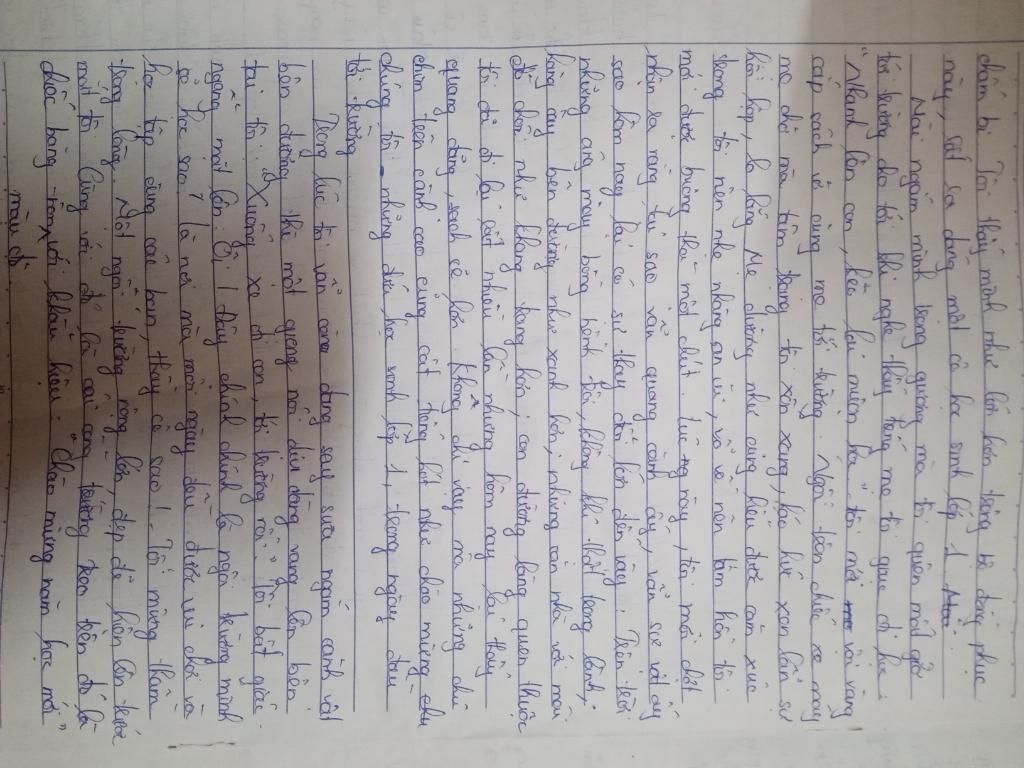 chăm bị. Tôi thấy mình như lớn hơn trong bộ đồng phục
này, sắp sửa đúng một cô học sinh lớp 1
Mải ngắm mình trong gương mà tôi quên mất giờ
tới trường do tới khi nghe thấy tiếng mẹ tôi giục đi học:
"Nhanh lên con, kẻo lại muộn học" tôi mới vội vàng
cặp sách vở cùng mẹ tới trường. Ngồi trên chiếc xe máy
mẹ chở mà tâm trạng tôi xốn xang, háo hức xen lẫn sự
hồi hộp, lo lắng. Mẹ dường như cũng hiểu được cảm xúc
trong tôi nên nhẹ nhàng an ủi, vỗ về nên tâm hồn tôi
mới được buông thả một chút. Lúc này, tôi mới chợt
nhận ra rằng tại sao vẫn quang cảnh ấy, vẫn sự vật ấy
sao hôm nay lại có sự thay đổi lớn đến vậy. Trên trời
những áng mây bồng bềnh trôi, không khí thật trong lành,
hàng cây bên đường như xanh hơn, những căn nhà và mái
đỏ dần như khang trang hơn; con đường làng quen thuộc
tôi đã đi lại rất nhiều lần nhưng hôm nay lại thấy
quang đãng, sạch sẽ hơn. Không chỉ vậy mà những chú
chim trên cành cao cũng cất tiếng hót như chào mừng chu
chúng tôi - những đứa học sinh lớp 1, trong ngày đầu
tới trường
Trong lúc tôi vẫn còn đang say sưa ngắm cảnh vật
bên đường thì một giọng nói dịu dàng vang lên bên
tai tôi: "Xuống xe đi con, tới trường rồi" Tôi bất giác
ngẩng mặt lên. Ồ! đây chính là ngôi trường mình
sẽ học sao? là nơi mà mỗi ngày đều được vui chơi và
học tập cùng các bạn, thầy cô sao! - Tôi mừng thầm
trong lòng. Một ngôi trường rộng lớn, đẹp đẽ hiện lên trước
mắt tôi. Cùng với đó là cái cổng trường trên đó là
chiếc băng - rôn với khẩu hiệu: "Chào mừng năm học mới"
màu đỏ